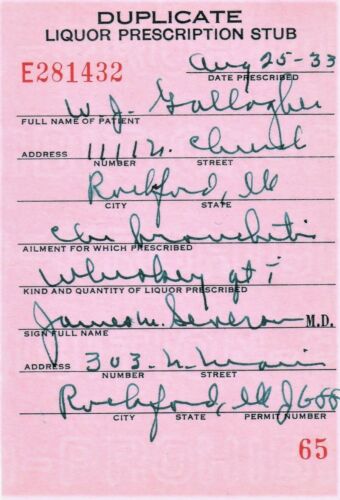 DUPLICATE
LIQUOR PRESCRIPTION STUB
E281432
Aug 25-33
DATE PRESCRIBED
W. J. Gallagher
FULL NAME OF PATIENT
ADDRESS 1111 N. Church
NUMBER STREET
Rockford, Ill
CITY STATE
Chr bronchitis
AILMENT FOR WHICH PRESCRIBED
Whiskey qt i
KIND AND QUANTITY OF LIQUOR PRESCRIBED
James M. Severson M.D.
SIGN FULL NAME
ADDRESS 303. N. Main
NUMBER STREET
Rockford, Ill J608
CITY STATE PERMIT NUMBER
65